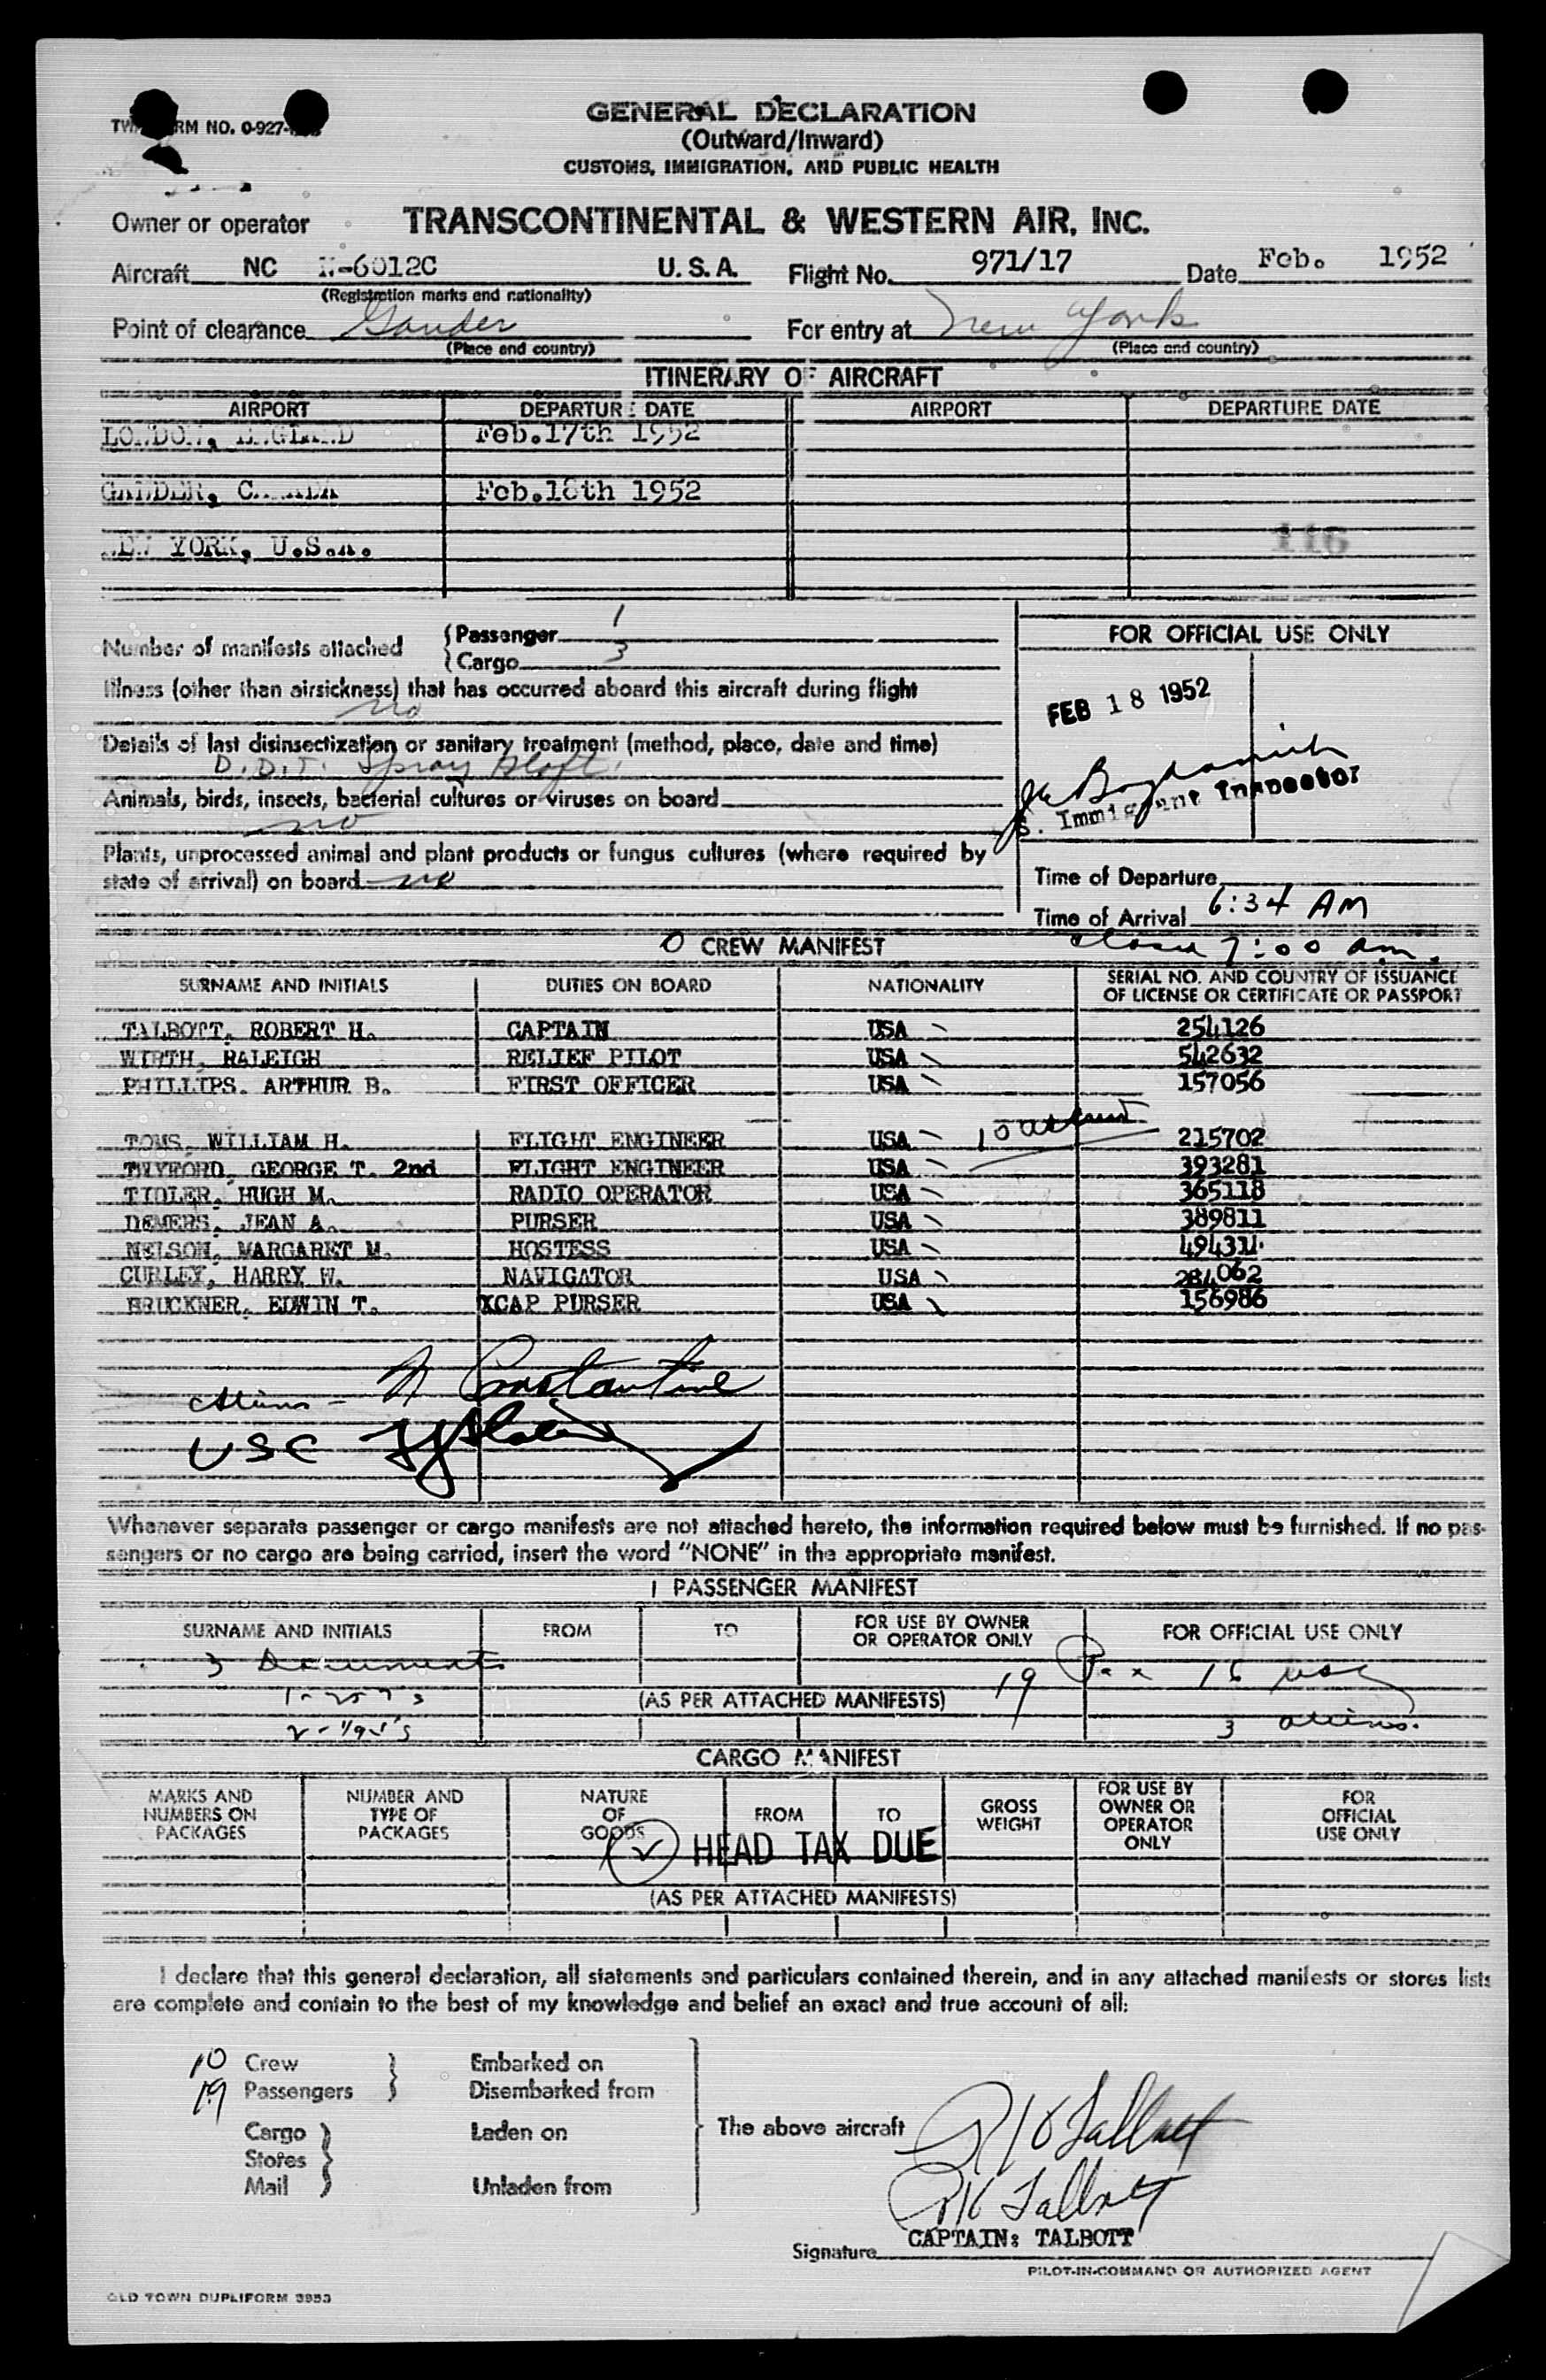 GENERAL DECLARATION
(Outward/Inward)
CUSTOMS, IMMIGRATION, AND PUBLIC HEALTH
RM NO. 0-927-
Owner or operator TRANSCONTINENTAL & WESTERN AIR, INC.
Aircraft NC N-6012C U.S.A. Flight No. 971/17 Date Feb. 1952
(Registration marks and nationality)
Point of clearance Gander For entry at New York
(Place and country) (Place and country)
ITINERARY OF AIRCRAFT
AIRPORT DEPARTURE DATE AIRPORT DEPARTURE DATE
LONDON, ENGLAND Feb.17th 1952
GANDER, CANADA Feb.18th 1952
NEW YORK, U.S.A.
116
Number of manifests attached { Passenger 1
{ Cargo 3
FOR OFFICIAL USE ONLY
Illness (other than airsickness) that has occurred aboard this aircraft during flight
no
FEB 18 1952
Details of last disinsectization or sanitary treatment (method, place, date and time)
D.D.T. Spray Aloft.
Animals, birds, insects, bacterial cultures or viruses on board
no
S. Immigrant Inspector
Plants, unprocessed animal and plant products or fungus cultures (where required by
state of arrival) on board no
Time of Departure
Time of Arrival 6:34 AM
7:00 am.
0 CREW MANIFEST
SURNAME AND INITIALS DUTIES ON BOARD NATIONALITY SERIAL NO. AND COUNTRY OF ISSUANCE
OF LICENSE OR CERTIFICATE OR PASSPORT
TALBOTT, ROBERT H. CAPTAIN USA 254126
WIRTH, RALEIGH RELIEF PILOT USA 542632
PHILLIPS. ARTHUR B. FIRST OFFICER USA 157056
TOMS, WILLIAM H. FLIGHT ENGINEER USA 215702
TWYFORD, GEORGE T. 2nd FLIGHT ENGINEER USA 393281
TIDLER, HUGH M. RADIO OPERATOR USA 365118
DEMERS, JEAN A. PURSER USA 389811
NELSON, MARGARET M. HOSTESS USA
CURLEY, HARRY W. NAVIGATOR USA 284062
BRUCKNER, EDWIN T. XCAP PURSER USA 156986
Aliens - N Constantine
USC
Whenever separate passenger or cargo manifests are not attached hereto, the information required below must be furnished. If no pas-
sengers or no cargo are being carried, insert the word "NONE" in the appropriate manifest.
1 PASSENGER MANIFEST
SURNAME AND INITIALS FROM TO FOR USE BY OWNER
OR OPERATOR ONLY FOR OFFICIAL USE ONLY
3 Documents
19 Pax 16 usc
(AS PER ATTACHED MANIFESTS)
3 aliens.
CARGO MANIFEST
MARKS AND
NUMBERS ON
PACKAGES
NUMBER AND
TYPE OF
PACKAGES
NATURE
OF
GOODS
FROM TO
GROSS
WEIGHT
FOR USE BY
OWNER OR
OPERATOR
ONLY
FOR
OFFICIAL
USE ONLY
HEAD TAX DUE
(AS PER ATTACHED MANIFESTS)
I declare that this general declaration, all statements and particulars contained therein, and in any attached manifests or stores lists
are complete and contain to the best of my knowledge and belief an exact and true account of all:
10 Crew } Embarked on
19 Passengers } Disembarked from
Cargo } Laden on
Stores }
Mail } Unladen from
The above aircraft R H Talbott
R H Talbott
CAPTAIN: TALBOTT
Signature
PILOT-IN-COMMAND OR AUTHORIZED AGENT
OLD TOWN DUPLIFORM 3953